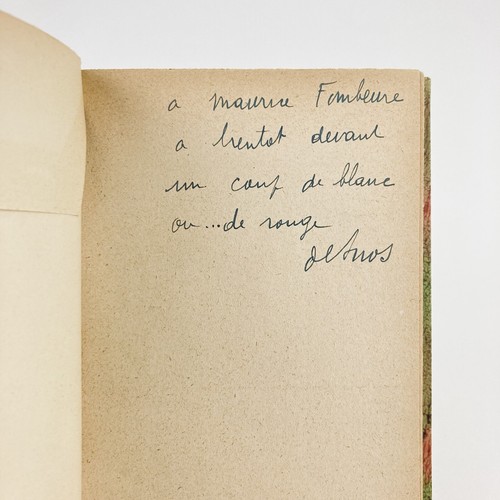 a maurice Fombeure
a bientot devant
un coup de blanc
ou...de rouge
desnos